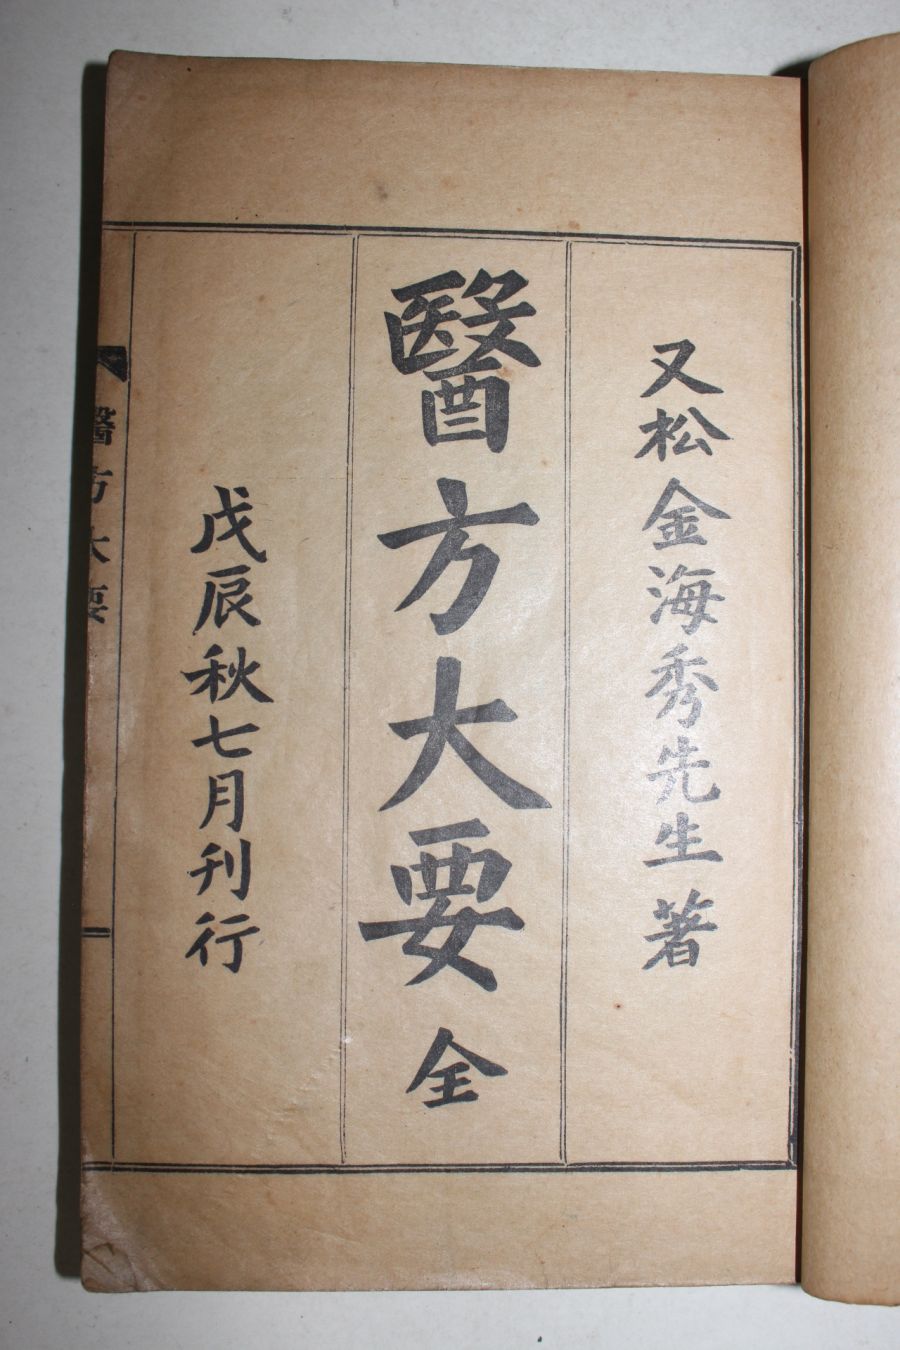 又松金海秀先生著
醫方大要 全
戊辰秋七月刊行
醫方大要